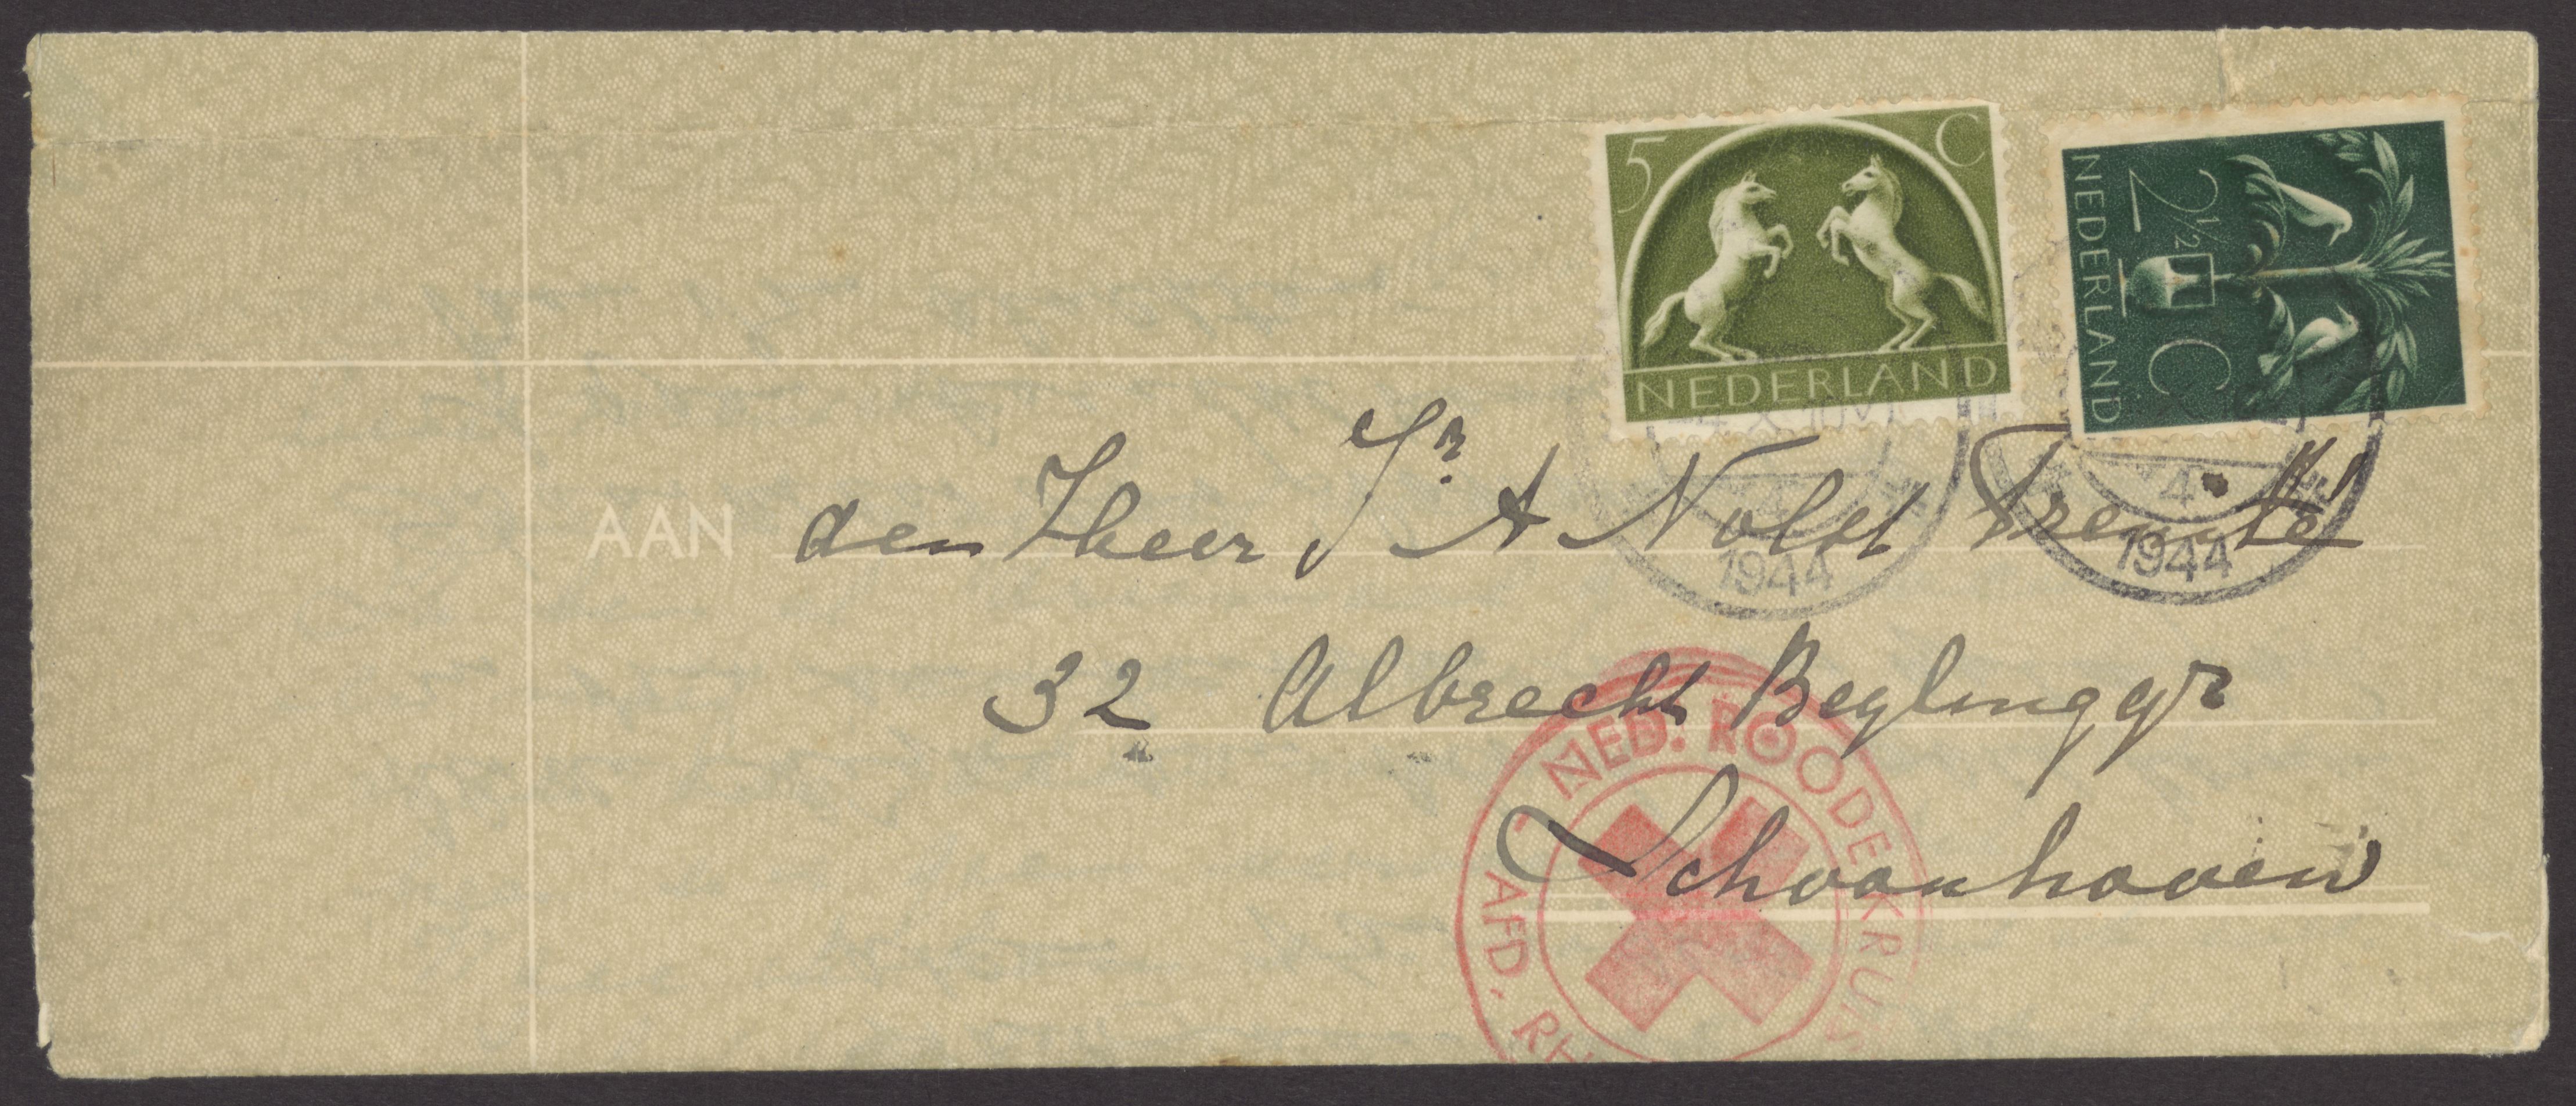 5 C
NEDERLAND
2½ C
NEDERLAND
1944
4
1944
AAN den Heer Jr A Nolst Trenité
32 Albrecht Beylinggr
Schoonhoven
NED. ROODE KRUIS
AFD. RH